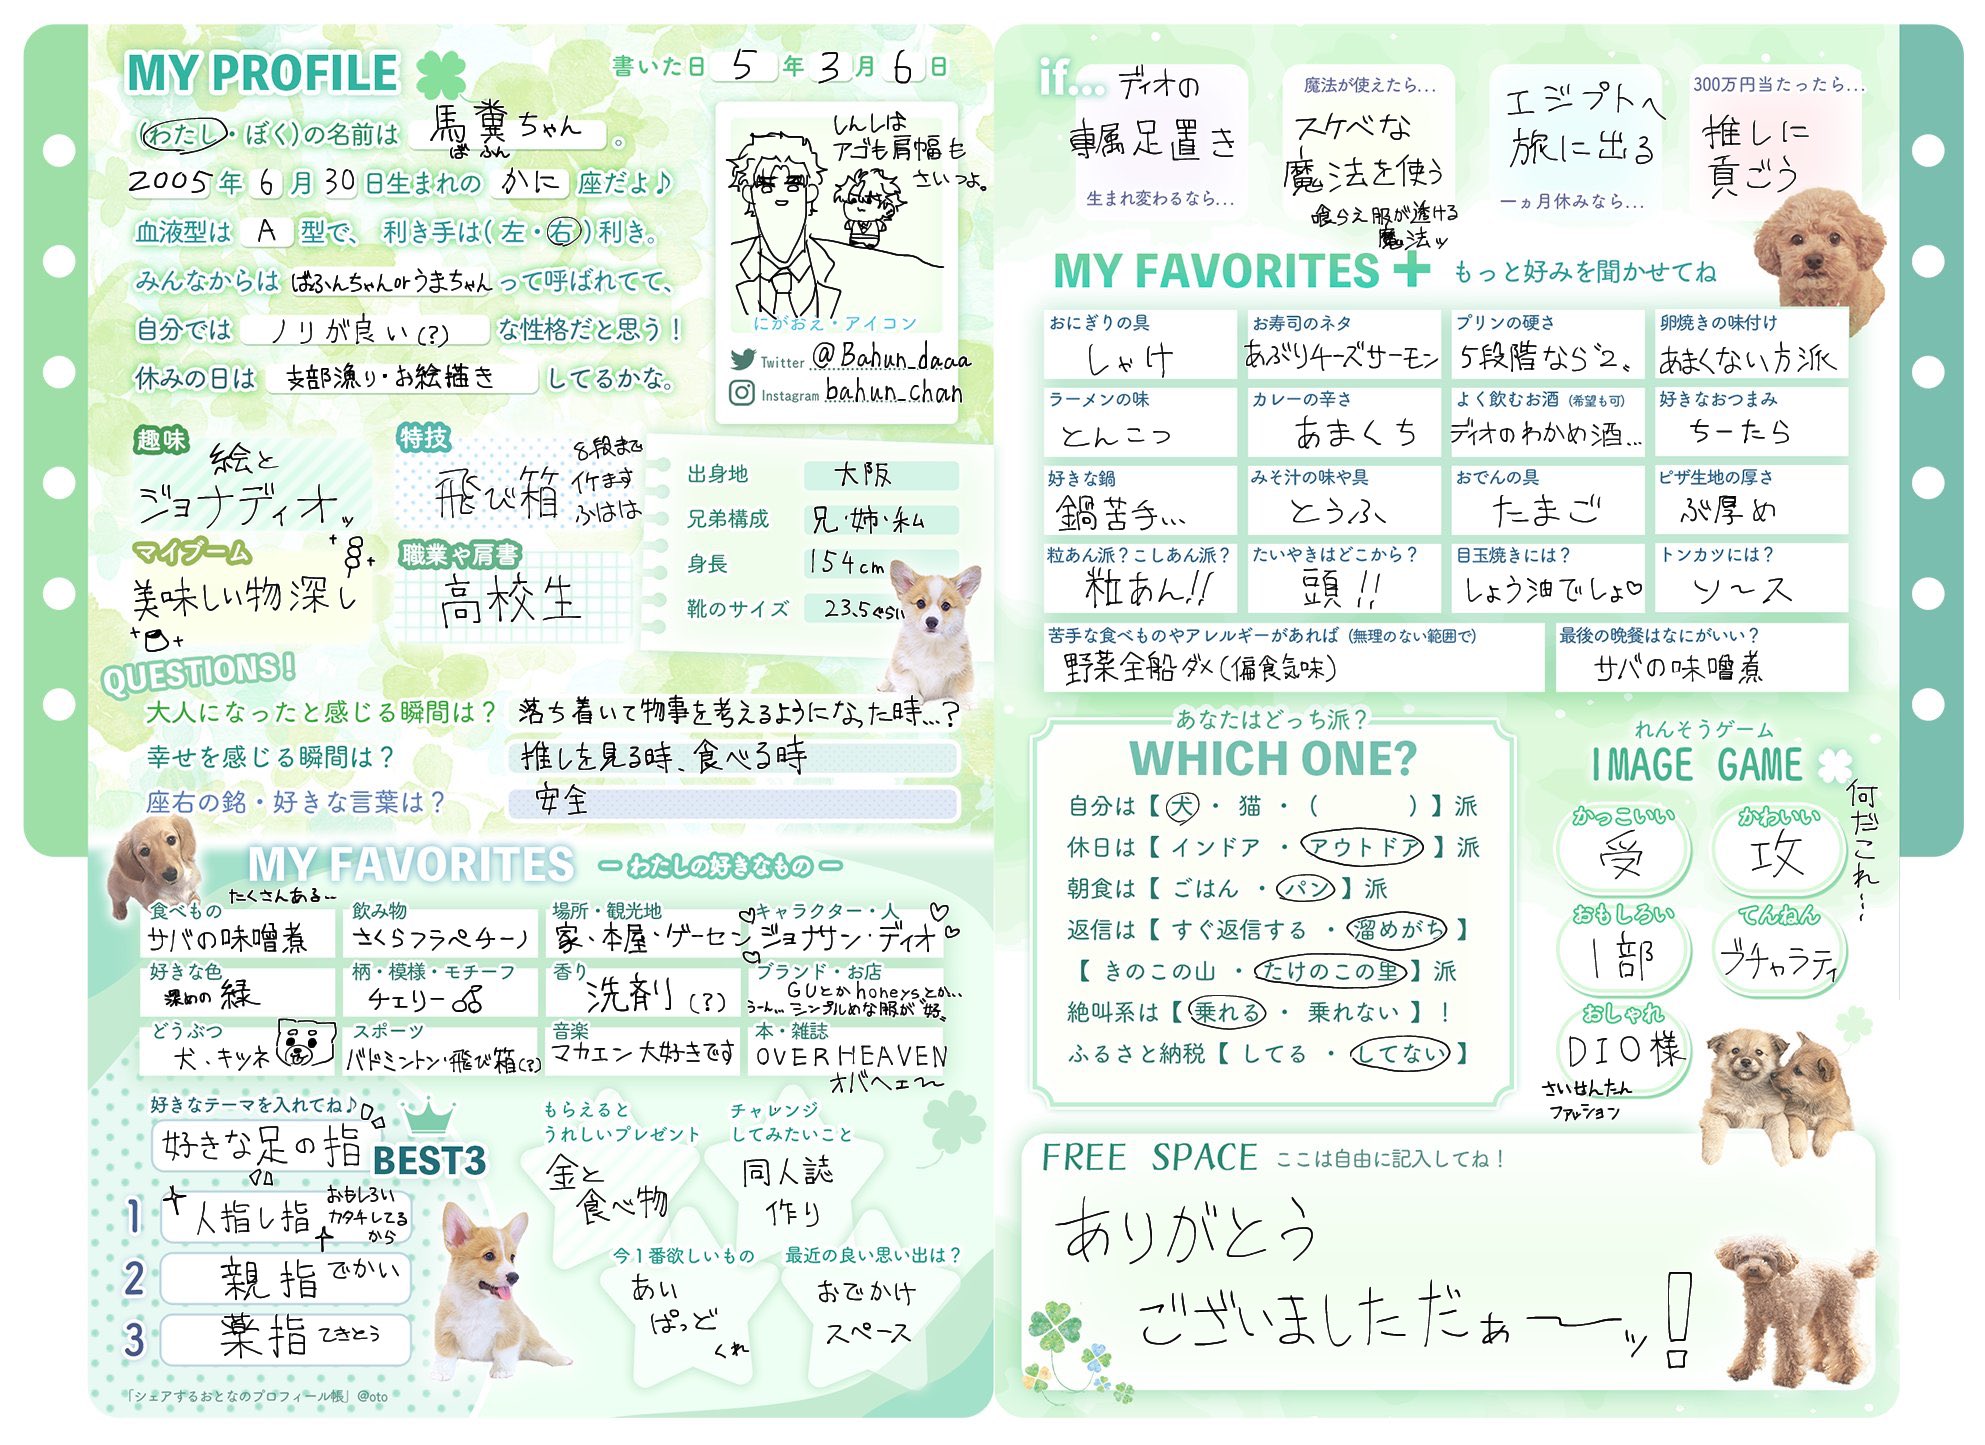 MY PROFILE
書いた日 5 年 3 月 6 日
(わたし・ぼく)の名前は 馬糞ちゃん 。
ば ふん
2005 年 6 月 30 日生まれの かに 座だよ♪
血液型は A 型で、 利き手は( 左・右 )利き。
みんなからは ばふんちゃんorうまちゃん って呼ばれてて、
自分では ノリが良い(?) な性格だと思う!
休みの日は 支部漁り・お絵描き してるかな。
しんしは
アゴも肩幅も
さいつよ。
にがおえ・アイコン
Twitter @Bahun_daaa
Instagram bahun_chan
趣味
絵と
ジョナディオッ
特技
飛び箱
8段まで
イケます
ふはは
マイブーム
美味しい物深し
職業や肩書
高校生
出身地 大阪
兄弟構成 兄・姉・私
身長 154cm
靴のサイズ 23.5ぐらい
QUESTIONS!
大人になったと感じる瞬間は? 落ち着いて物事を考えるようになった時...?
幸せを感じる瞬間は? 推しを見る時、食べる時
座右の銘・好きな言葉は? 安全
MY FAVORITES ーわたしの好きなものー
たくさんある...
食べもの
サバの味噌煮
飲み物
さくらフラペチーノ
場所・観光地
家・本屋・ゲーセン
キャラクター・人
ジョナサン・ディオ
好きな色
深めの 緑
柄・模様・モチーフ
チェリー
香り
洗剤(?)
ブランド・お店
GUとかhoneysとか...
うーん... シンプルめな服が好。
どうぶつ
犬、キツネ
スポーツ
バドミントン・飛び箱(?)
音楽
マカエン大好きです
本・雑誌
OVER HEAVEN
オバヘェ〜
好きなテーマを入れてね♪
好きな足の指
BEST3
1 人指し指
おもしろい
カタチしてる
から
2 親指 でかい
3 薬指 てきとう
もらえると
うれしいプレゼント
金と
食べ物
チャレンジ
してみたいこと
同人誌
作り
今1番欲しいもの
あい
ぱっど
くれ
最近の良い思い出は?
おでかけ
スペース
「シェアするおとなのプロフィール帳」@oto
if...
ディオの
専属足置き
生まれ変わるなら...
魔法が使えたら...
スケベな
魔法を使う
喰らえ服が透ける
魔法ッ
エジプトへ
旅に出る
一ヵ月休みなら...
300万円当たったら...
推しに
貢ごう
MY FAVORITES + もっと好みを聞かせてね
おにぎりの具
しゃけ
お寿司のネタ
あぶりチーズサーモン
プリンの硬さ
5段階なら2。
卵焼きの味付け
あまくない方派
ラーメンの味
とんこつ
カレーの辛さ
あまくち
よく飲むお酒 (希望も可)
ディオのわかめ酒...
好きなおつまみ
ちーたら
好きな鍋
鍋苦手...
みそ汁の味や具
とうふ
おでんの具
たまご
ピザ生地の厚さ
ぶ厚め
粒あん派?こしあん派?
粒あん!!
たいやきはどこから?
頭!!
目玉焼きには?
しょう油でしょ♡
トンカツには?
ソース
苦手な食べものやアレルギーがあれば (無理のない範囲で)
野菜全船ダメ(偏食気味)
最後の晩餐はなにがいい?
サバの味噌煮
あなたはどっち派?
WHICH ONE?
自分は【 犬 ・ 猫 ・ ( ) 】派
休日は【 インドア ・ アウトドア 】派
朝食は【 ごはん ・ パン 】派
返信は【 すぐ返信する ・ 溜めがち 】
【 きのこの山 ・ たけのこの里 】派
絶叫系は【 乗れる ・ 乗れない 】!
ふるさと納税【 してる ・ してない 】
れんそうゲーム
IMAGE GAME
何だこれ...
かっこいい
受
かわいい
攻
おもしろい
1部
てんねん
ブチャラティ
おしゃれ
DIO様
さいせんたん
ファッション
FREE SPACE ここは自由に記入してね!
ありがとう
ございましただぁーーッ!